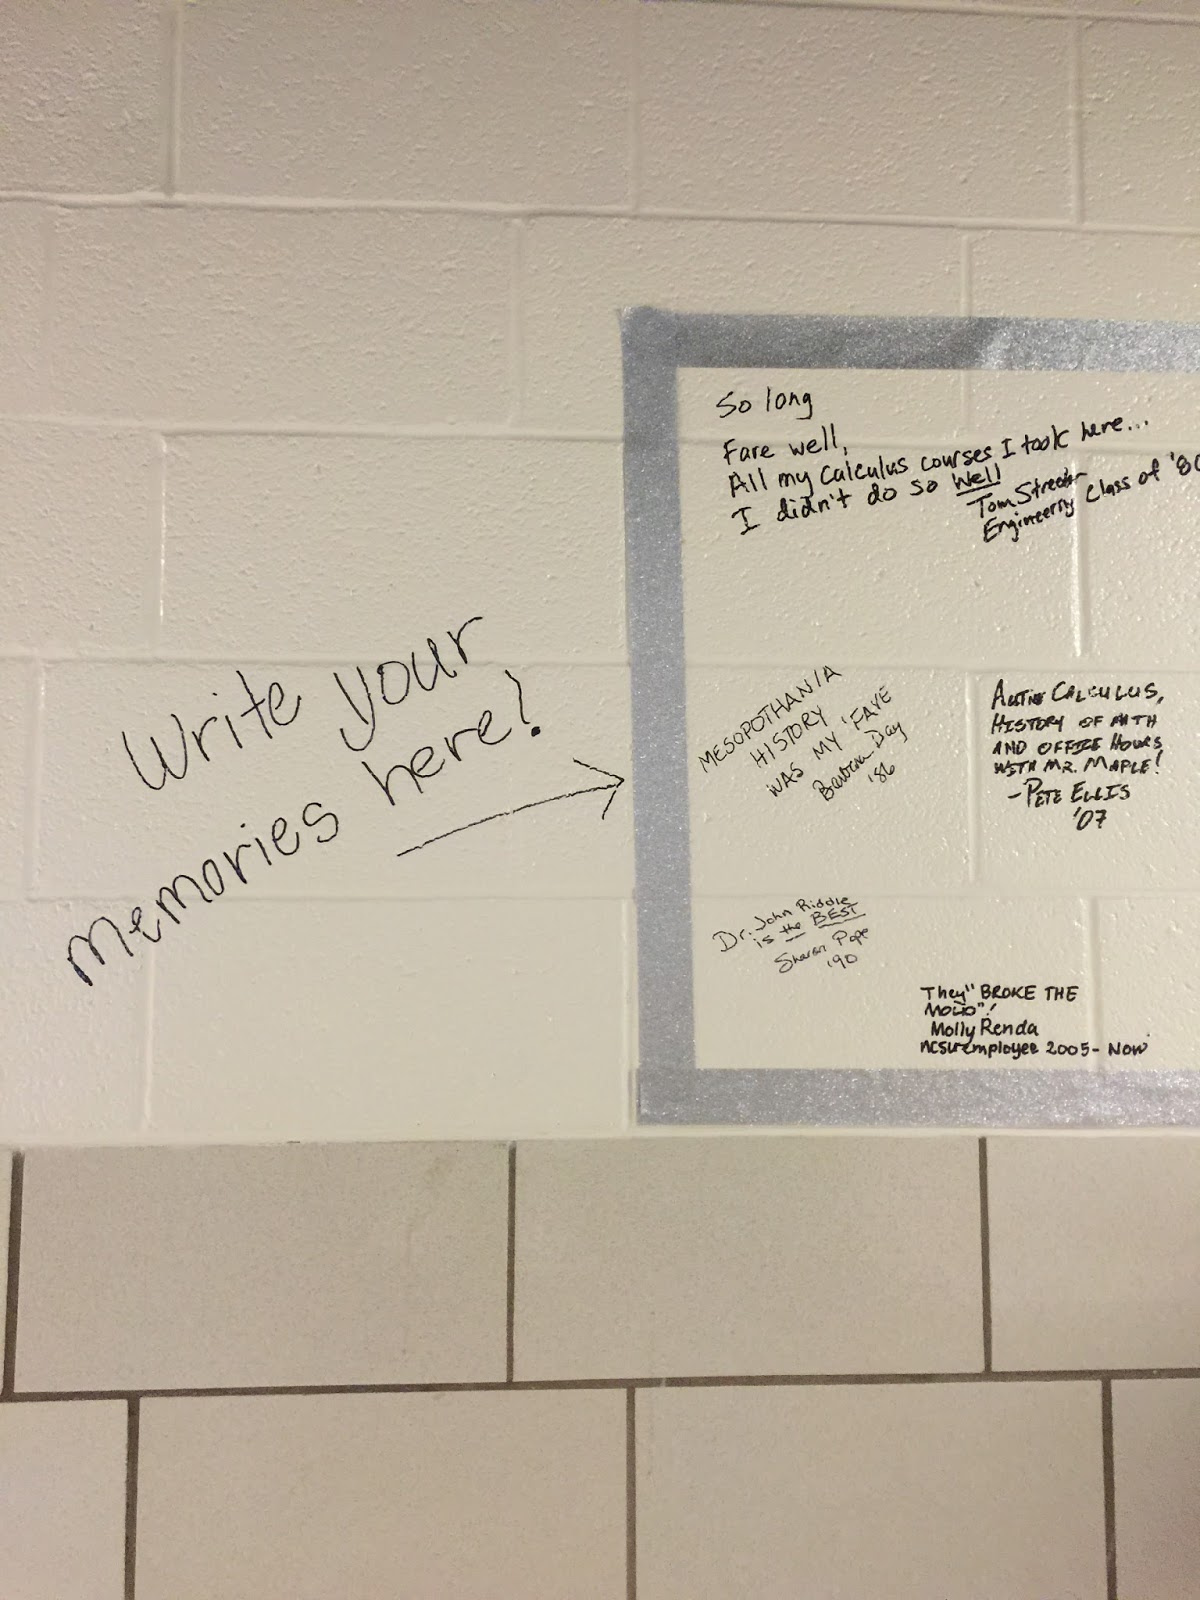 Write your
memories here!
So long
Fare well,
All my Calculus courses I took here...
I didn't do so Well
Tom
Engineering Class of '80
MESOPOTHANIA
HISTORY
WAS MY 'FAVE
Barbara Day
'86
CALCULUS,
HISTORY OF MATH
AND OFFICE HOURS
WITH MR. MAPLE!
- PETE ELLIS
'07
Dr. John Riddle
is the BEST
Sharon Pope
'90
They "BROKE THE
MOLD"!
Molly Renda
NCSU employee 2005- NOW